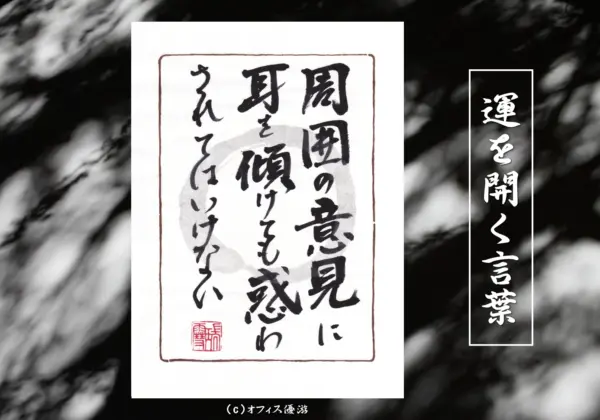 運を開く言葉
周囲の意見に
耳を傾けても惑わ
されてはいけない
(c)オフィス優游